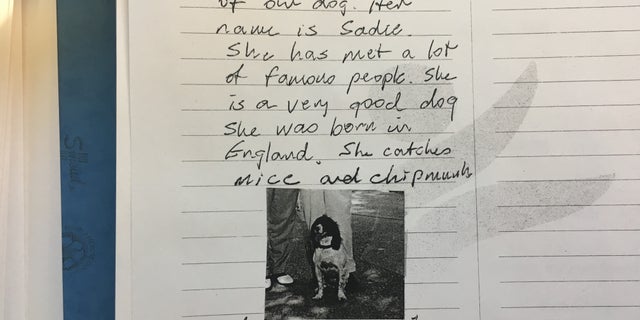 of our dog. Her
name is Sadie.
She has met a lot
of famous people. She
is a very good dog
She was born in
England. She catches
mice and chipmunks